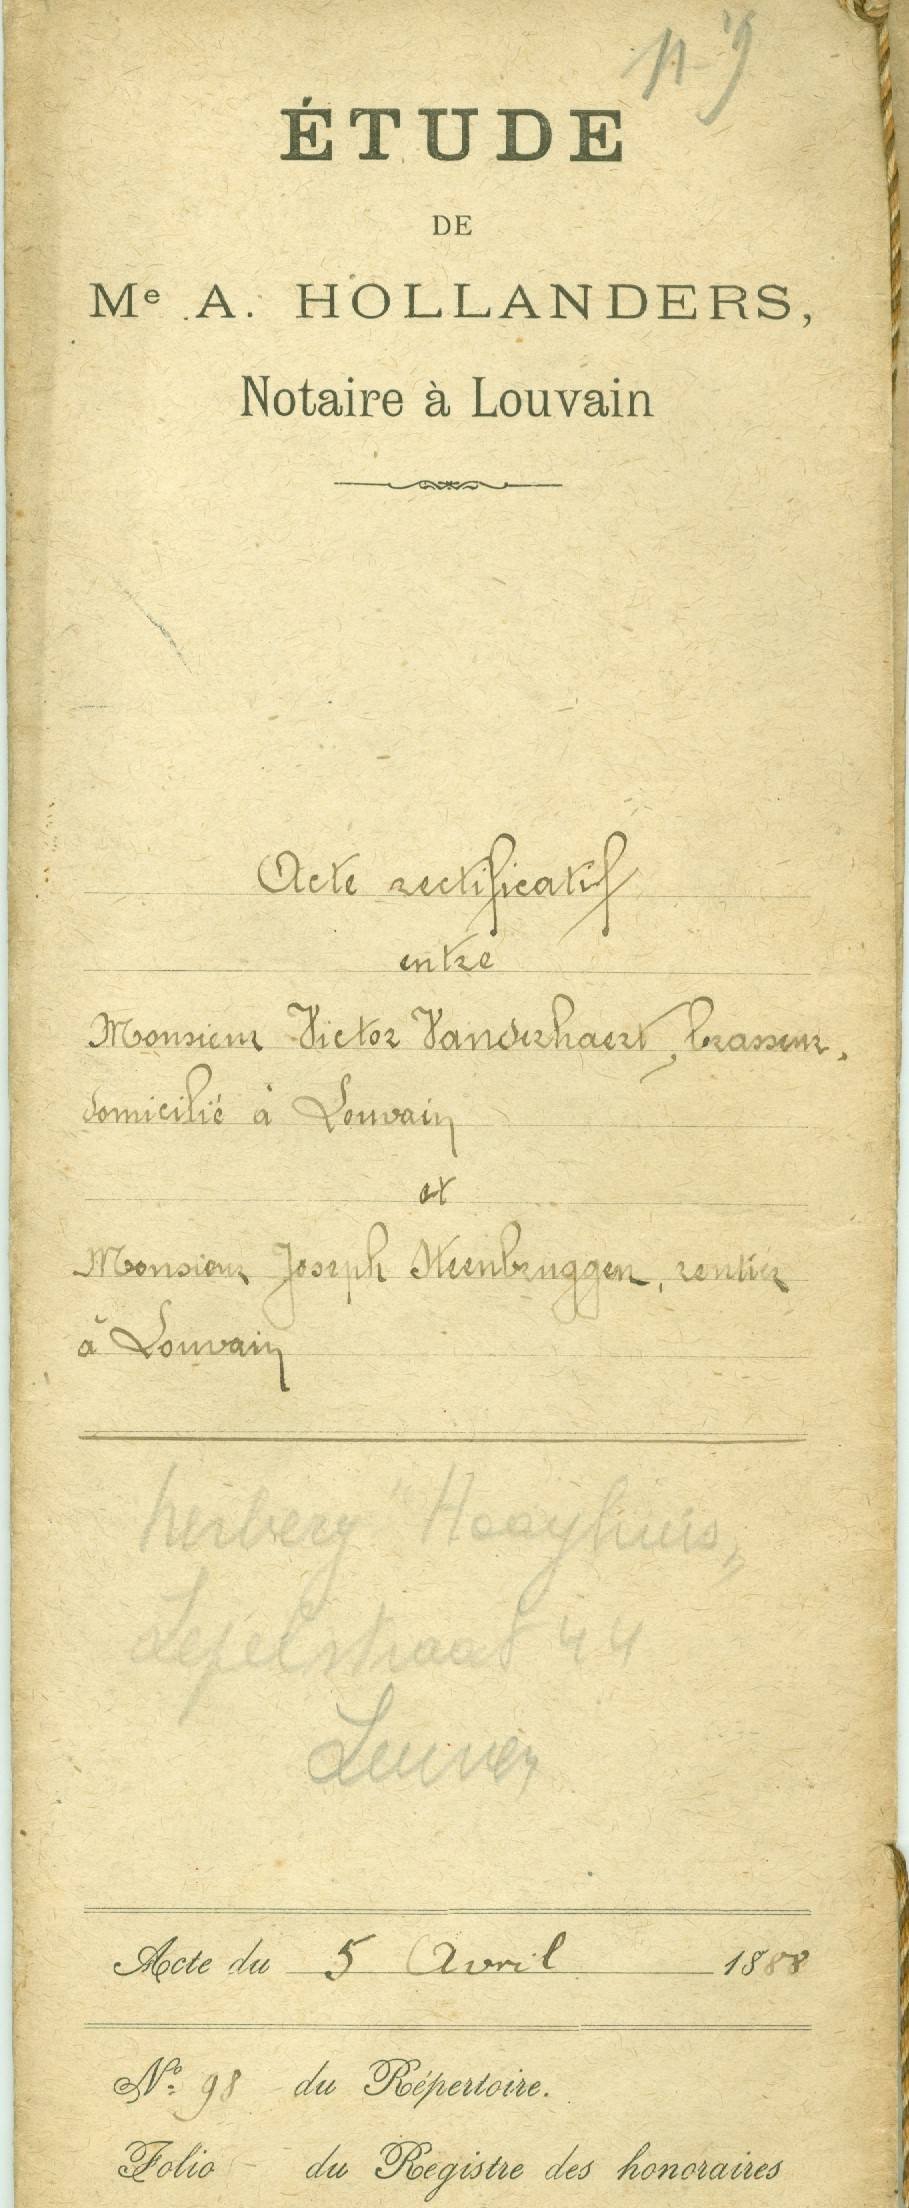 n° 9
ÉTUDE
DE
Me A. HOLLANDERS,
Notaire à Louvain
Acte rectificatif
entre
Monsieur Victor Vanderhaert, brasseur,
domicilié à Louvain
et
Monsieur Joseph Steenbruggen, rentier
à Louvain
herberg "Haayhuis„
Lepelstraat 44
Leuven
Acte du 5 Avril 1888
No: 98 du Répertoire.
Folio du Registre des honoraires